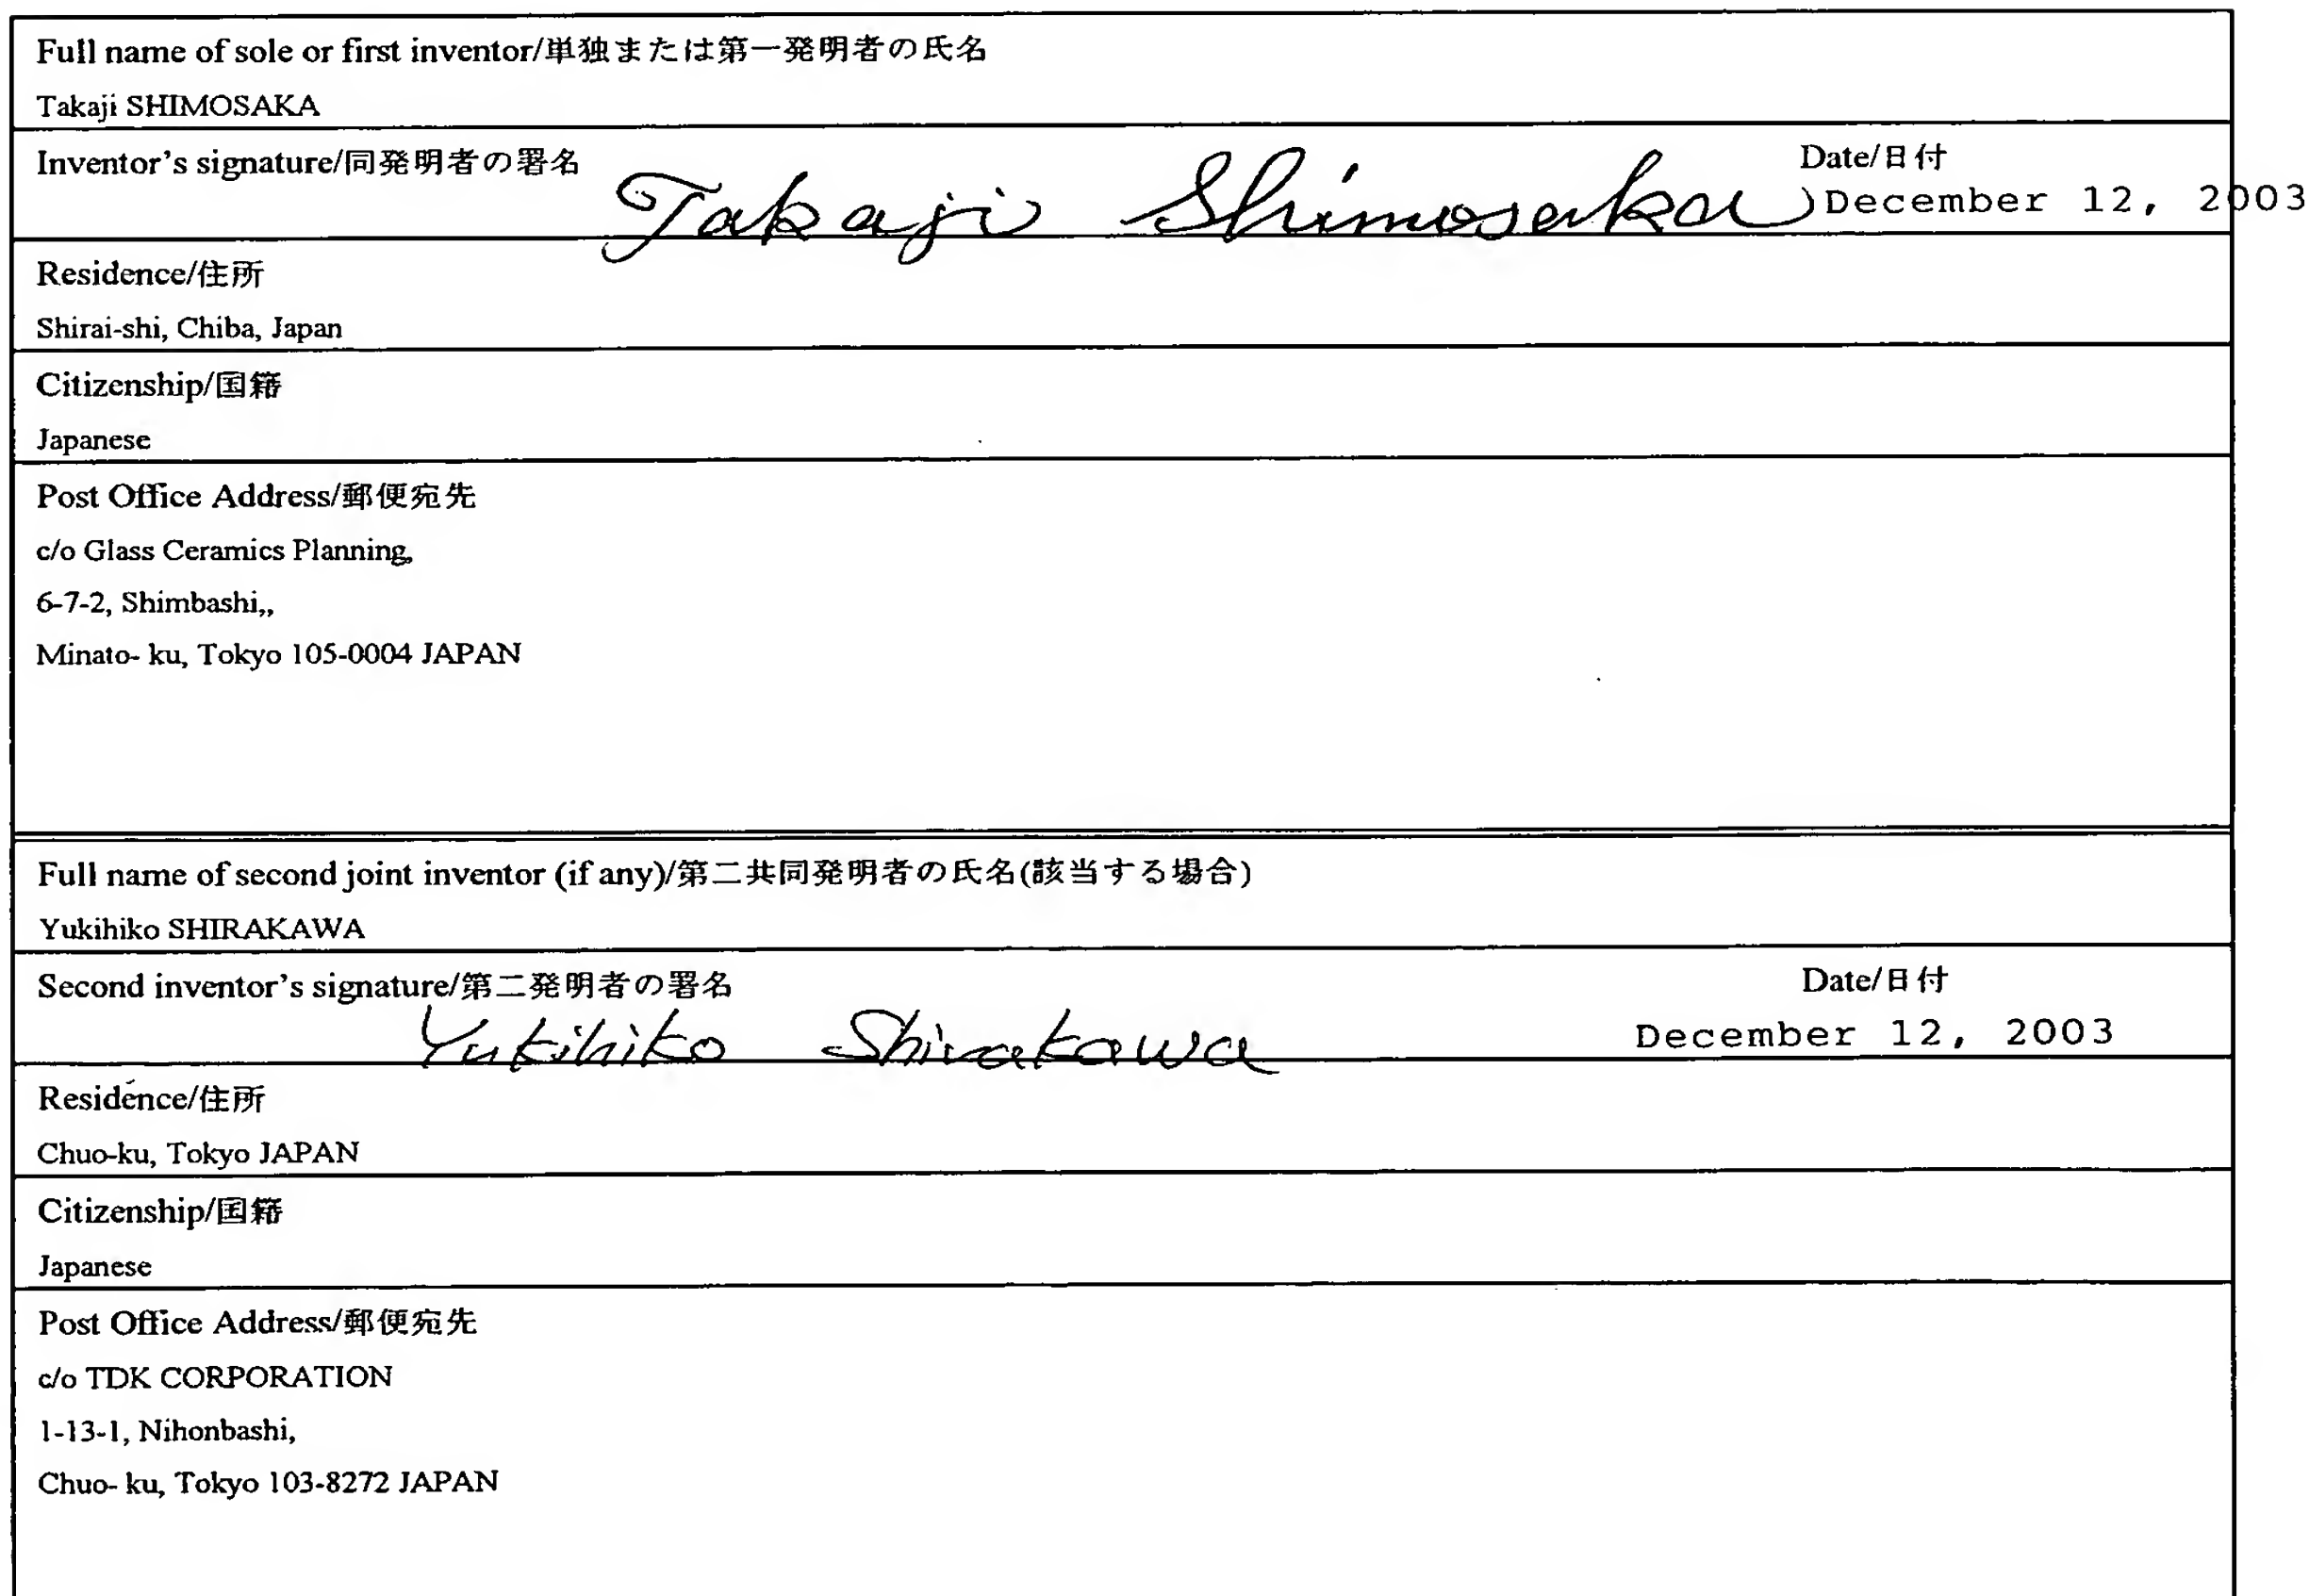 Full name of sole or first inventor/単独または第一発明者の氏名
Takaji SHIMOSAKA
Inventor's signature/同発明者の署名 Takaji Shimosaka Date/日付
December 12, 2003
Residence/住所
Shirai-shi, Chiba, Japan
Citizenship/国籍
Japanese
Post Office Address/郵便宛先
c/o Glass Ceramics Planning,
6-7-2, Shimbashi,,
Minato- ku, Tokyo 105-0004 JAPAN
Full name of second joint inventor (if any)/第二共同発明者の氏名(該当する場合)
Yukihiko SHIRAKAWA
Second inventor's signature/第二発明者の署名 Date/日付
Yukihiko Shirakawa December 12, 2003
Residence/住所
Chuo-ku, Tokyo JAPAN
Citizenship/国籍
Japanese
Post Office Address/郵便宛先
c/o TDK CORPORATION
1-13-1, Nihonbashi,
Chuo- ku, Tokyo 103-8272 JAPAN